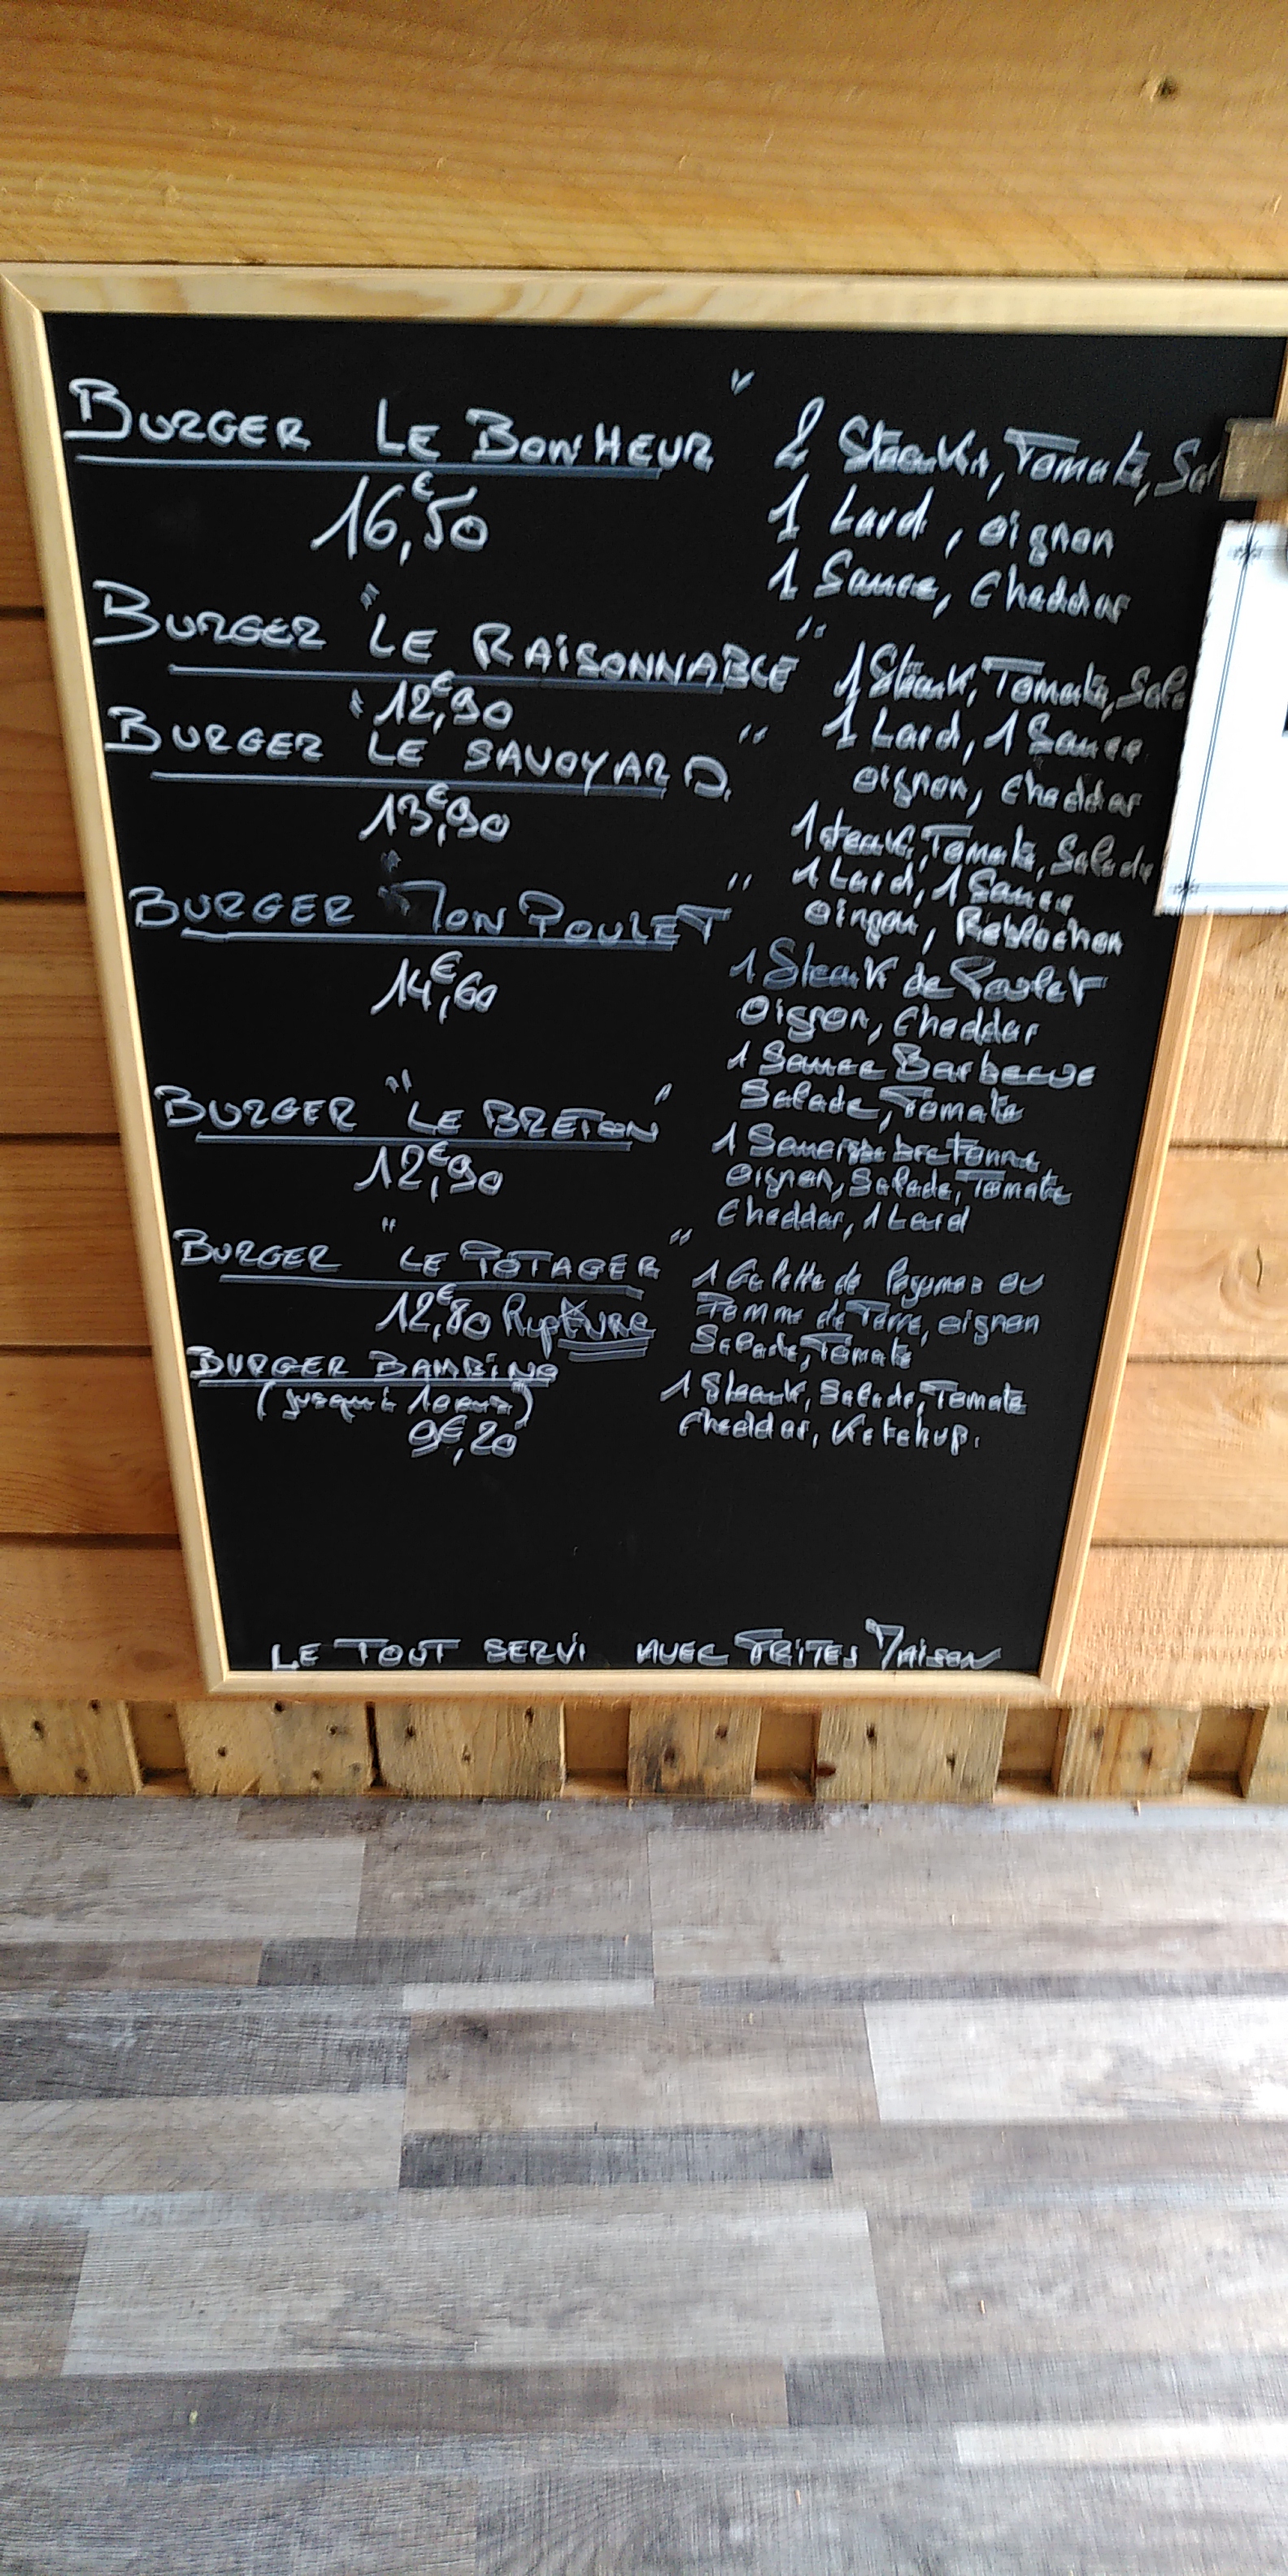 BURGER LE BONHEUR " 2 Steaks, Tomate, Sal
16€,50
1 Lard, oignon
1 Sauce, Cheddar
BURGER "LE RAISONNABLE"
12€,90
1 Steak, Tomate, Sala
1 Lard, 1 Sauce
oignon, Cheddar
BURGER " LE SAVOYARD "
13€,90
1 steak, Tomate, Salade
1 Lard, 1 Sauce
Oingon, Reblochon
BURGER "MON POULET"
14€,60
1 Steak de Poulet
Oignon, Cheddar
1 Sauce Barbecue
Salade, Tomate
BURGER "LE BRETON"
12€,90
1 Saucisse bretonne
Oignon, Salade, Tomate
Cheddar, 1 Lard
BURGER "LE POTAGER"
12€,80 Rupture
1 Galette de légumes ou
Pomme de Terre, oignon
Salade, Tomate
BURGER BAMBINO
(jusqu'à 10 ans)
9€,20
1 Steak, Salade, Tomate
Cheddar, Ketchup.
LE TOUT SERVI AVEC FRITES MAISON